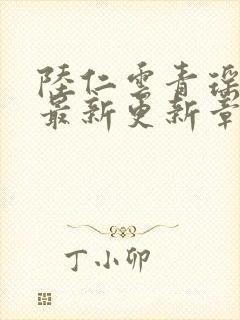 陸仁雲青瑶
最新更新章
丁小卯